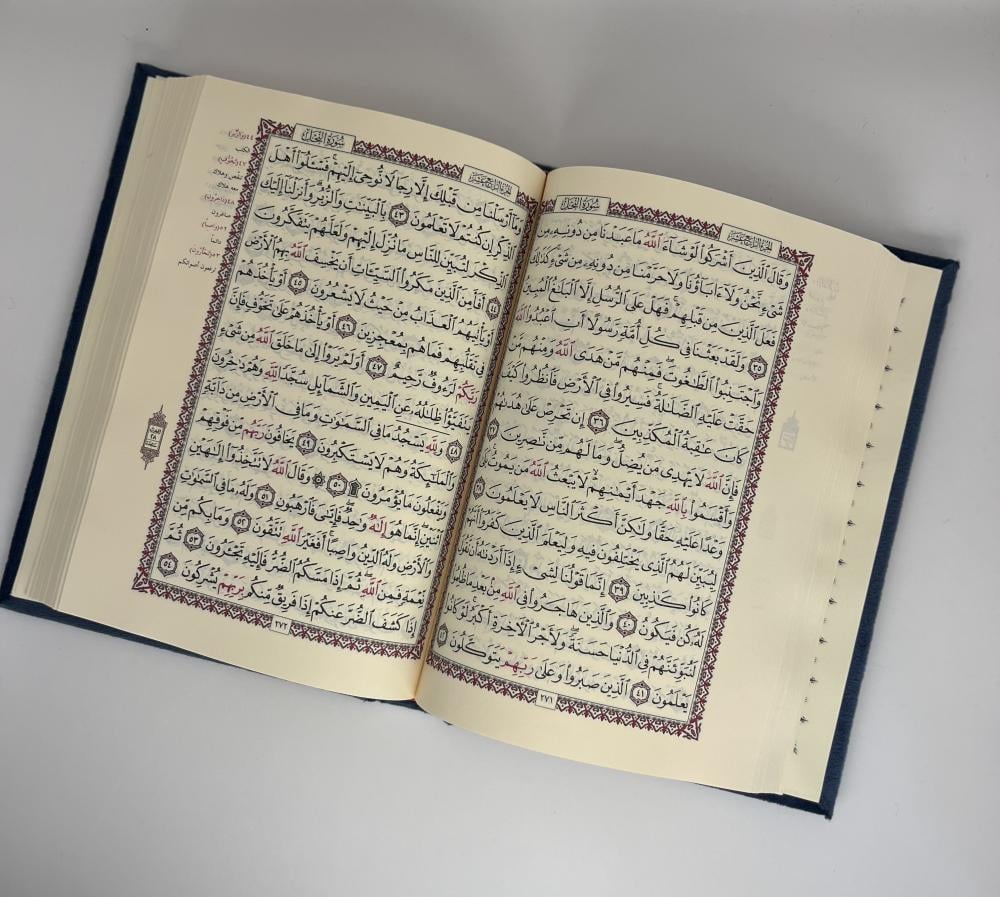 سُورَةُ النَّحْلِ
الجزء الرابع عشر
وَقَالَ ٱلَّذِينَ أَشْرَكُوا۟ لَوْ شَآءَ ٱللَّهُ مَا عَبَدْنَا مِن دُونِهِۦ مِن
شَىْءٍ نَّحْنُ وَلَآ ءَابَآؤُنَا وَلَا حَرَّمْنَا مِن دُونِهِۦ مِن شَىْءٍ كَذَٰلِكَ
فَعَلَ ٱلَّذِينَ مِن قَبْلِهِمْ فَهَلْ عَلَى ٱلرُّسُلِ إِلَّا ٱلْبَلَٰغُ ٱلْمُبِينُ
٣٥ وَلَقَدْ بَعَثْنَا فِى كُلِّ أُمَّةٍ رَّسُولًا أَنِ ٱعْبُدُوا۟ ٱللَّهَ
وَٱجْتَنِبُوا۟ ٱلطَّٰغُوتَ فَمِنْهُم مَّنْ هَدَى ٱللَّهُ وَمِنْهُم مَّنْ
حَقَّتْ عَلَيْهِ ٱلضَّلَٰلَةُ فَسِيرُوا۟ فِى ٱلْأَرْضِ فَٱنظُرُوا۟ كَيْفَ
كَانَ عَٰقِبَةُ ٱلْمُكَذِّبِينَ ٣٦ إِن تَحْرِصْ عَلَىٰ هُدَىٰهُمْ
فَإِنَّ ٱللَّهَ لَا يَهْدِى مَن يُضِلُّ وَمَا لَهُم مِّن نَّٰصِرِينَ ٣٧
وَأَقْسَمُوا۟ بِٱللَّهِ جَهْدَ أَيْمَٰنِهِمْ لَا يَبْعَثُ ٱللَّهُ مَن يَمُوتُ بَلَىٰ
وَعْدًا عَلَيْهِ حَقًّا وَلَٰكِنَّ أَكْثَرَ ٱلنَّاسِ لَا يَعْلَمُونَ ٣٨
لِيُبَيِّنَ لَهُمُ ٱلَّذِى يَخْتَلِفُونَ فِيهِ وَلِيَعْلَمَ ٱلَّذِينَ كَفَرُوٓا۟ أَنَّهُمْ
كَانُوا۟ كَٰذِبِينَ ٣٩ إِنَّمَا قَوْلُنَا لِشَىْءٍ إِذَآ أَرَدْنَٰهُ أَن نَّقُولَ
لَهُۥ كُن فَيَكُونُ ٤٠ وَٱلَّذِينَ هَاجَرُوا۟ فِى ٱللَّهِ مِنۢ بَعْدِ مَا ظُلِمُوا۟
لَنُبَوِّئَنَّهُمْ فِى ٱلدُّنْيَا حَسَنَةً وَلَأَجْرُ ٱلْءَاخِرَةِ أَكْبَرُ لَوْ كَانُوا۟
يَعْلَمُونَ ٤١ ٱلَّذِينَ صَبَرُوا۟ وَعَلَىٰ رَبِّهِمْ يَتَوَكَّلُونَ ٤٢
٢٧١
سُورَةُ النَّحْلِ
الجزء الرابع عشر
وَمَآ أَرْسَلْنَا مِن قَبْلِكَ إِلَّا رِجَالًا نُّوحِىٓ إِلَيْهِمْ فَسْـَٔلُوٓا۟ أَهْلَ
ٱلذِّكْرِ إِن كُنتُمْ لَا تَعْلَمُونَ ٤٣ بِٱلْبَيِّنَٰتِ وَٱلزُّبُرِ وَأَنزَلْنَآ إِلَيْكَ
ٱلذِّكْرَ لِتُبَيِّنَ لِلنَّاسِ مَا نُزِّلَ إِلَيْهِمْ وَلَعَلَّهُمْ يَتَفَكَّرُونَ
٤٤ أَفَأَمِنَ ٱلَّذِينَ مَكَرُوا۟ ٱلسَّيِّـَٔاتِ أَن يَخْسِفَ ٱللَّهُ بِهِمُ ٱلْأَرْضَ
أَوْ يَأْتِيَهُمُ ٱلْعَذَابُ مِنْ حَيْثُ لَا يَشْعُرُونَ ٤٥ أَوْ يَأْخُذَهُمْ
فِى تَقَلُّبِهِمْ فَمَا هُم بِمُعْجِزِينَ ٤٦ أَوْ يَأْخُذَهُمْ عَلَىٰ تَخَوُّفٍ فَإِنَّ
رَبَّكُمْ لَرَءُوفٌ رَّحِيمٌ ٤٧ أَوَلَمْ يَرَوْا۟ إِلَىٰ مَا خَلَقَ ٱللَّهُ مِن شَىْءٍ
يَتَفَيَّؤُا۟ ظِلَٰلُهُۥ عَنِ ٱلْيَمِينِ وَٱلشَّمَآئِلِ سُجَّدًا لِّلَّهِ وَهُمْ دَٰخِرُونَ
٤٨ وَلِلَّهِ يَسْجُدُ مَا فِى ٱلسَّمَٰوَٰتِ وَمَا فِى ٱلْأَرْضِ مِن دَآبَّةٍ
وَٱلْمَلَٰٓئِكَةُ وَهُمْ لَا يَسْتَكْبِرُونَ ٤٩ يَخَافُونَ رَبَّهُم مِّن فَوْقِهِمْ
وَيَفْعَلُونَ مَا يُؤْمَرُونَ ۩ ٥٠ ۞ وَقَالَ ٱللَّهُ لَا تَتَّخِذُوٓا۟ إِلَٰهَيْنِ
ٱثْنَيْنِ إِنَّمَا هُوَ إِلَٰهٌ وَٰحِدٌ فَإِيَّٰىَ فَٱرْهَبُونِ ٥١ وَلَهُۥ مَا فِى ٱلسَّمَٰوَٰتِ
وَٱلْأَرْضِ وَلَهُ ٱلدِّينُ وَاصِبًا أَفَغَيْرَ ٱللَّهِ تَتَّقُونَ ٥٢ وَمَا بِكُم مِّن
نِّعْمَةٍ فَمِنَ ٱللَّهِ ثُمَّ إِذَا مَسَّكُمُ ٱلضُّرُّ فَإِلَيْهِ تَجْـَٔرُونَ ٥٣ ثُمَّ
إِذَا كَشَفَ ٱلضُّرَّ عَنكُمْ إِذَا فَرِيقٌ مِّنكُم بِرَبِّهِمْ يُشْرِكُونَ ٥٤
٢٧٢